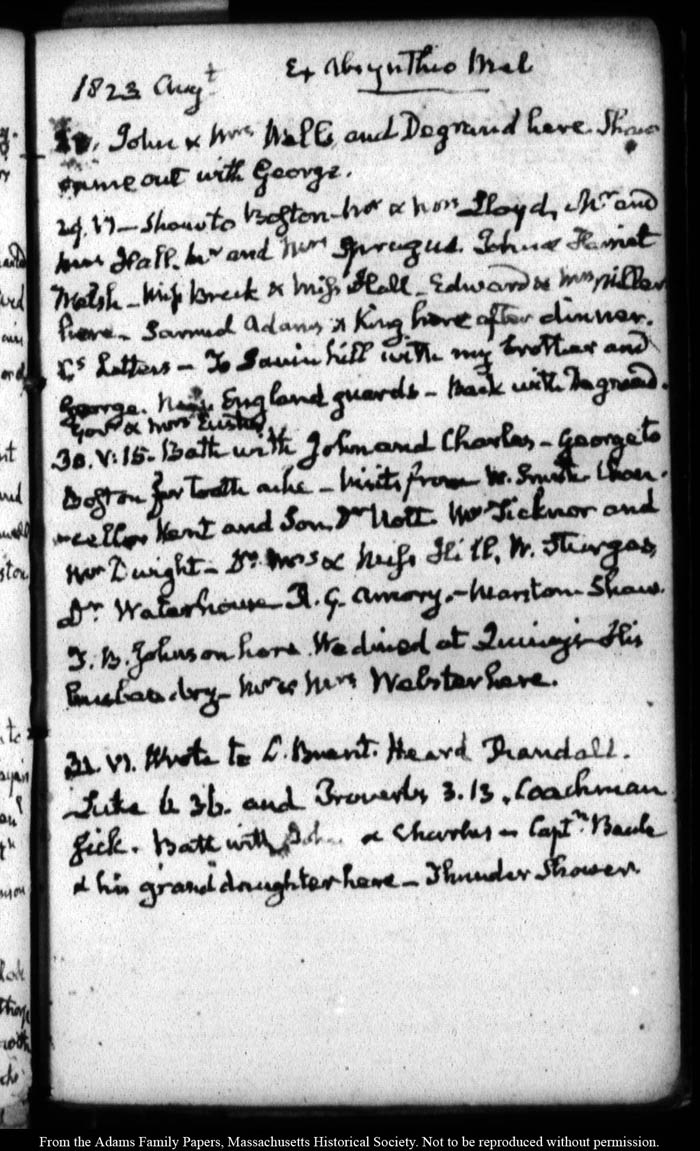 1823 Augt
Ex Absynthio Mel
John & Mrs Wells and Degrand here Shaw
came out with George.
29. VI— Shaw to Boston— Mr & Mrs Lloyd, Mr and
Mrs Hall. Mr and Mrs Sprague. John & Harriet
Welsh— Miss Breck & Miss Hall— Edward & Mrs Miller
here— Samuel Adams & King here after dinner.
Letters— To Savin hill with my brother and
George. New England guards— Back with Degrand.
Govr & Mrs Eustis
30. V: 15— Bath with John and Charles— George to
Boston for tooth ache— Visits from W. Smith. Chan-
cellor Kent and Son, Dr Nott. Mr Ticknor and
Mr Dwight— Dr. Mrs & Miss Hill, W. Sturgas,
Dr Waterhouse— Amory,— Marston— Shaw.
J. B. Johnson here. We dined at Quincy's— His
husbandry— Mr & Mrs Webster here.
31. VI. Wrote to Heard
Luke 6 36. and Proverbs 3. 13. Coachman
sick. Bath with John & Charles— Captn.
& his grand daughter here— Thunder Shower.
From the Adams Family Papers, Massachusetts Historical Society. Not to be reproduced without permission.